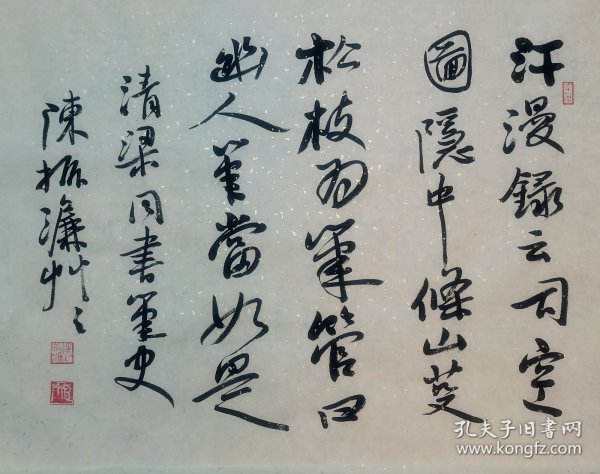 汗漫録云司空
圖隱中條山芟
松枝為筆管曰
幽人筆當如是
清梁同書筆史
陳振濂艸之
孔夫子旧书网
www.kongfz.com